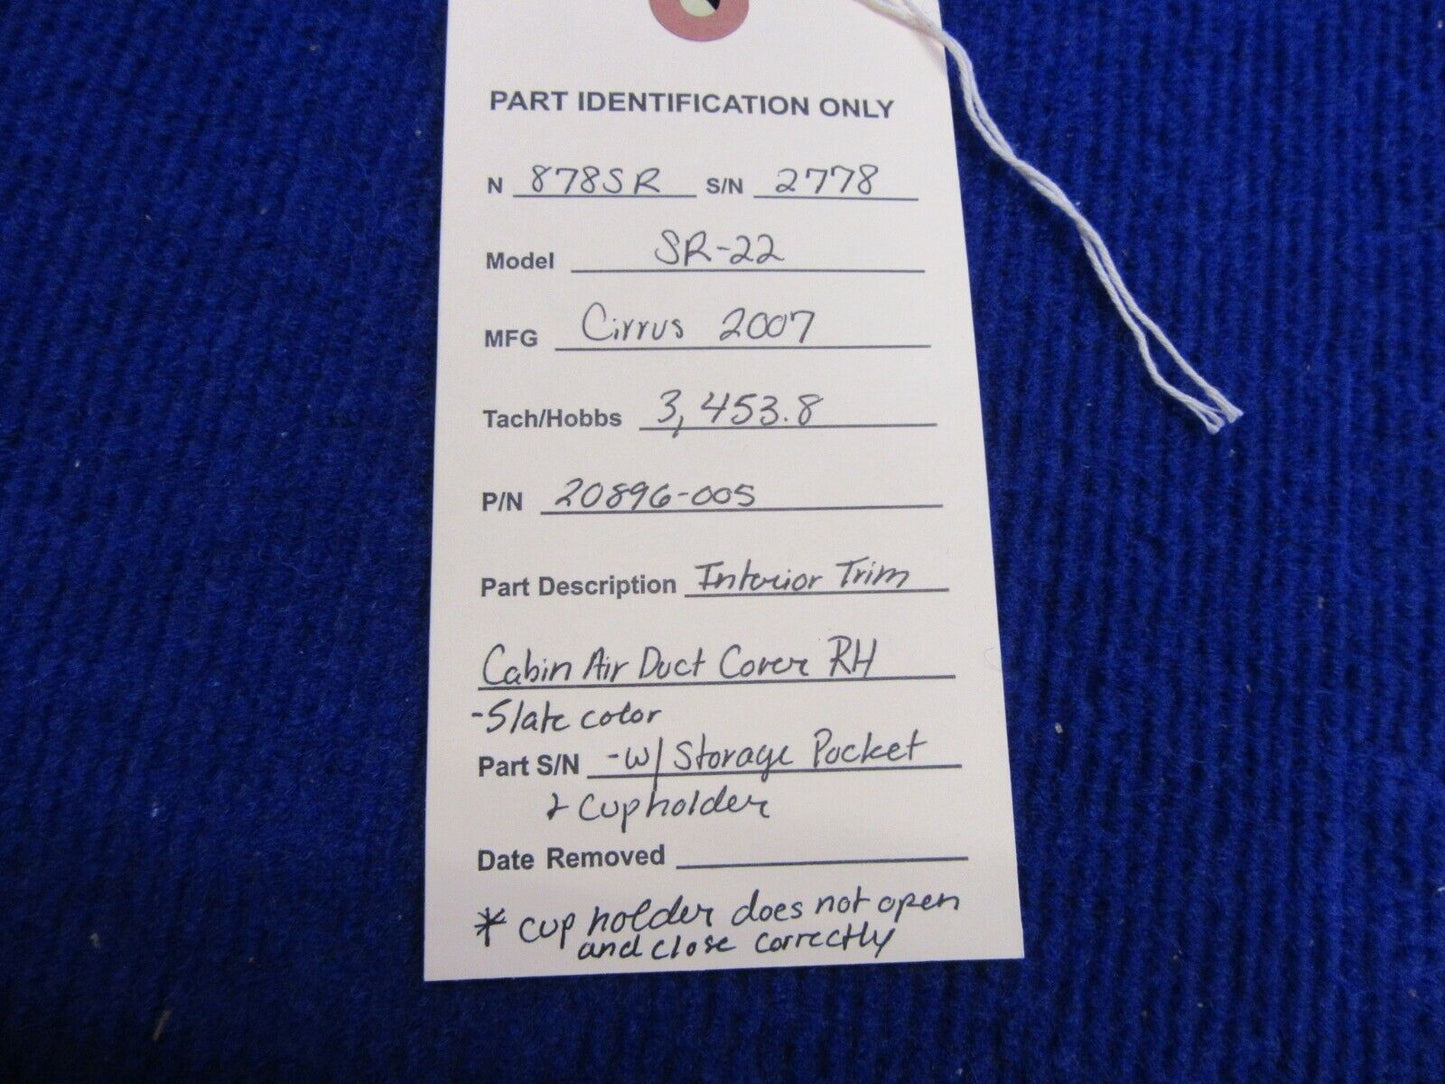 PART IDENTIFICATION ONLY
N 878SR S/N 2778
Model SR-22
MFG Cirrus 2007
Tach/Hobbs 3,453.8
P/N 20896-005
Part Description Interior Trim
Cabin Air Duct Cover RH
-Slate color
Part S/N -w/ Storage Pocket
& Cupholder
Date Removed
* cup holder does not open
and close correctly